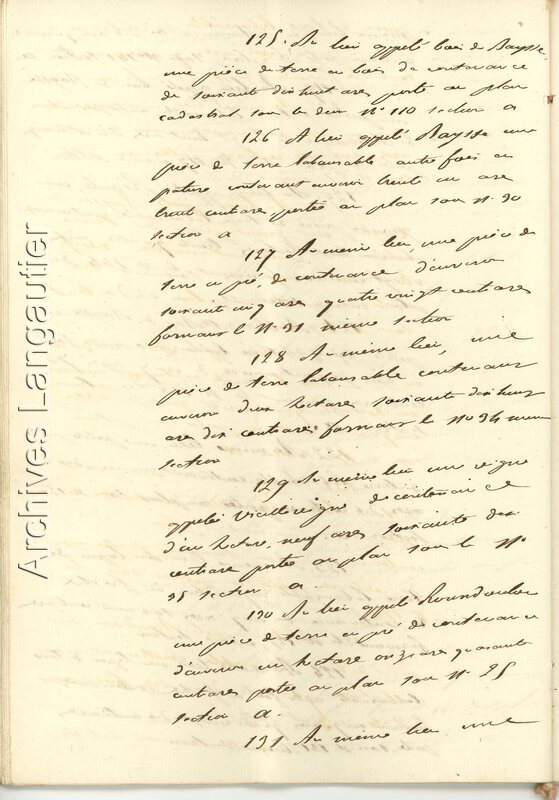 125. Au lieu appelé bois de Raysse,
une pièce de terre en bois de contenance
de soixante dix huit ares porté au plan
cadastral sous le dit N° 110 section a
126 Au lieu appelé Raysse une
pièce de terre labourable autre fois en
pature contenant environ trente un are
trente centiares portée au plan sous N° 30
section a
127 Au même lieu, une pièce de
terre en pré, de contenance d'environ
soixante cinq ares quatre vingt centiares
formant le N° 31 même section
128 Au même lieu, une
pièce de terre labourable contenant
environ deux hectares soixante dix huit
are dix centiares formant le N° 34 même
section
129 Au même lieu une vigne
appelée Vieille vigne de contenance
d'un hectare, neuf ares soixante dix
centiare portée au plan sous le N°
35 section a.
130 Au lieu appelé
une pièce de terre en pré de contenance
d'environ un hectare onze ares quarante
centiares portée au plan sous N° 25
section a.
131 Au même lieu, une
Archives Langautier